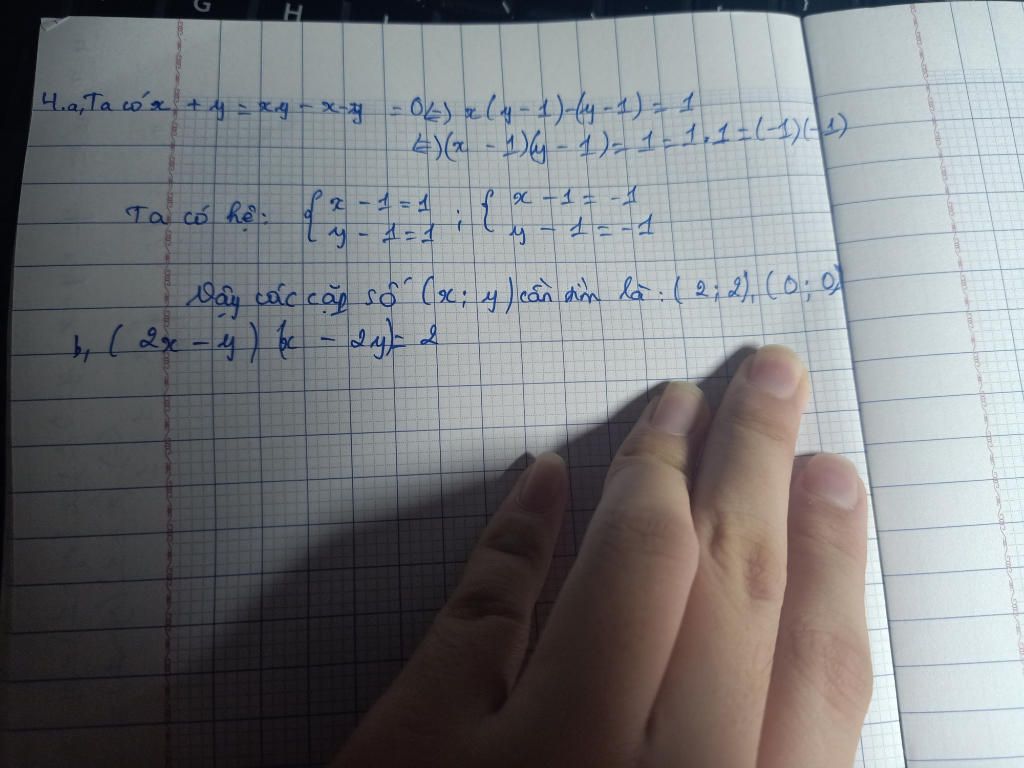 G H
4.a, Ta có x + y = xy - x - y = 0 ⇔ x(y-1)-(y-1) = 1
⇔ (x - 1)(y - 1) = 1 = 1.1 = (-1)(-1)
Ta có hệ: { x - 1 = 1 ; { x - 1 = -1
y - 1 = 1 y - 1 = -1
Vậy các cặp số (x; y) cần tìm là: (2; 2), (0; 0)
b, (2x - y)(x - 2y) = 2